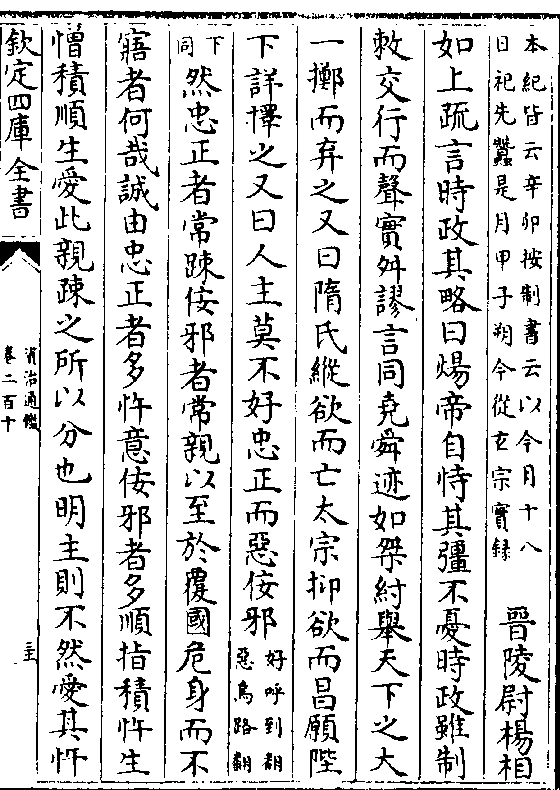 本紀皆云辛卯按制書云以今月十八
日祀先蠶是月甲子朔今從玄宗實録
晉陵尉楊相
如上疏言時政其略曰煬帝自恃其彊不憂時政雖制
敕交行而聲實舛謬言同堯舜迹如桀紂舉天下之大
一擲而弃之又曰隋氏縱欲而亡太宗抑欲而昌願陛
下詳擇之又曰人主莫不好忠正而惡佞邪
好呼到翻
惡烏路翻
下
同
然忠正者常踈佞邪者常親以至於覆國危身而不
寤者何哉誠由忠正者多忤意佞邪者多順指積忤生
憎積順生愛此親踈之所以分也明主則不然愛其忤
欽定四庫全書
資治通鑑
卷二百十